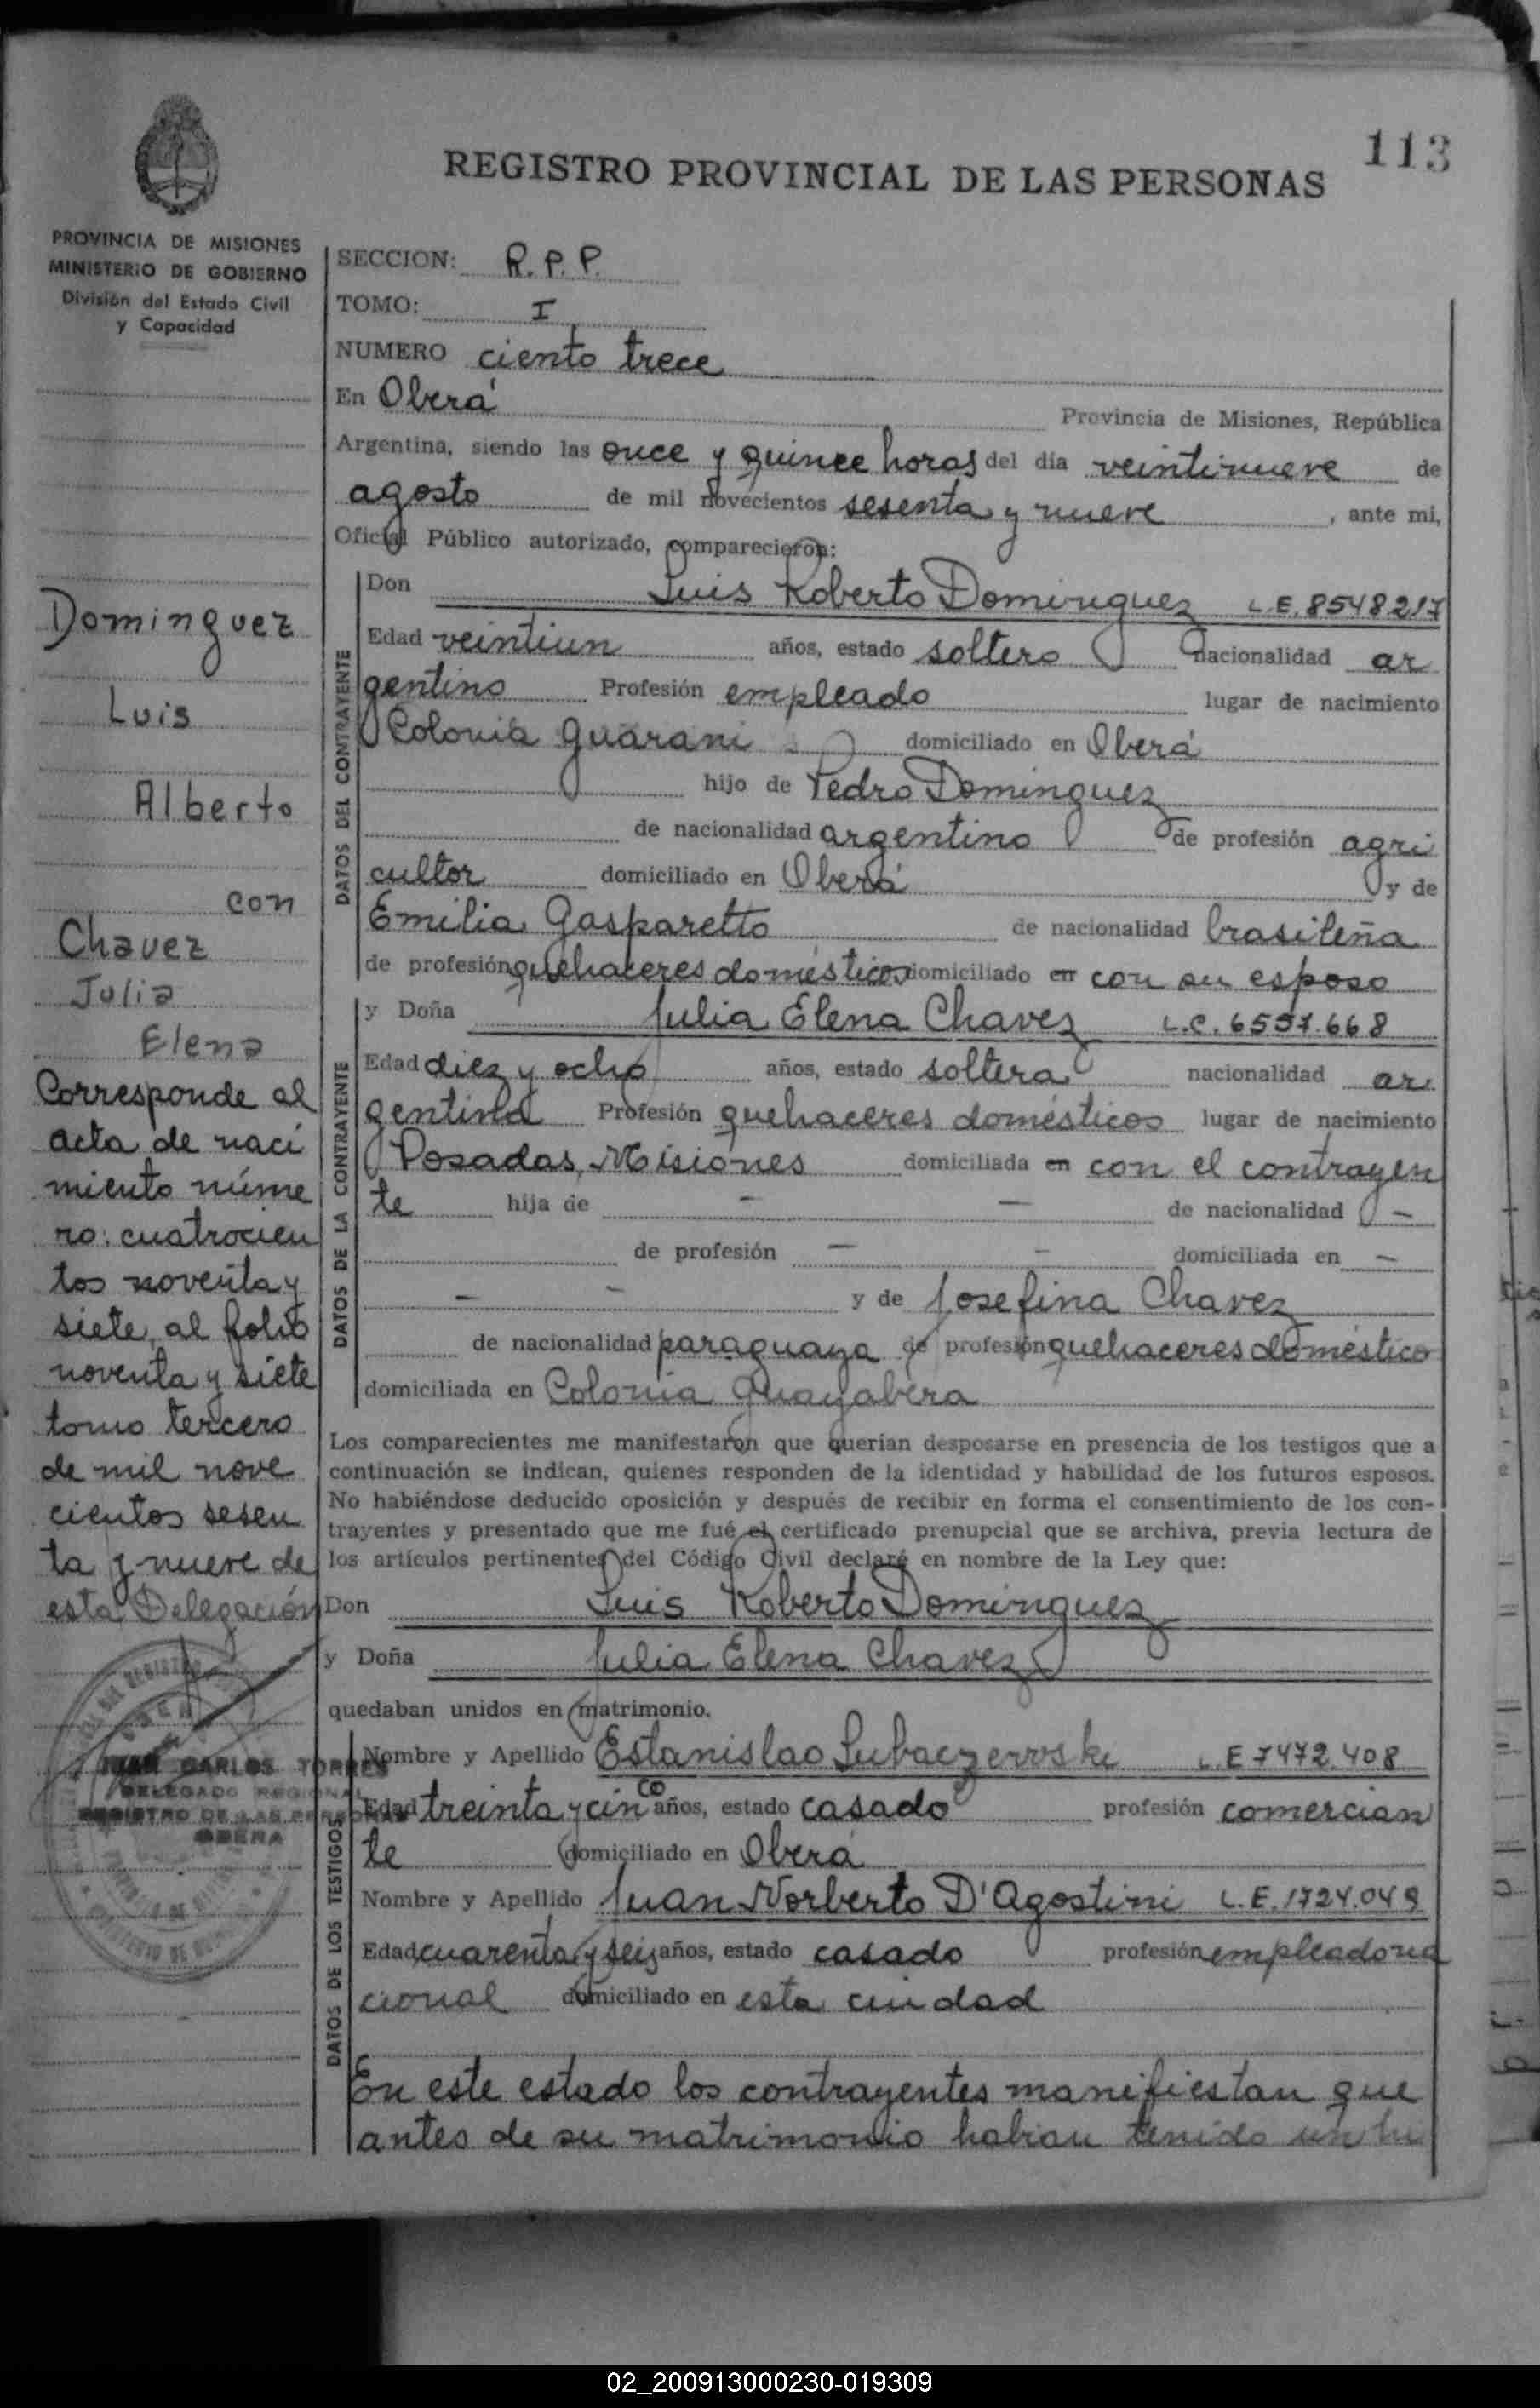 113
REGISTRO PROVINCIAL DE LAS PERSONAS
PROVINCIA DE MISIONES
MINISTERIO DE GOBIERNO
División del Estado Civil
y Capacidad
Dominguez
Luis
Alberto
con
Chavez
Julia
Elena
Corresponde al
acta de naci
miento núme
ro: cuatrocien
tos noventa y
siete, al folio
noventa y siete
tomo tercero
de mil nove
cientos sesen
ta y nueve de
esta Delegación
JUAN CARLOS TORRES
DELEGADO REGIONAL
REGISTRO DE LAS PERSONAS
OBERA
SECCION: R. P. P.
TOMO: I
NUMERO ciento trece
En Oberá Provincia de Misiones, República
Argentina, siendo las once y quince horas del día veintinueve de
agosto de mil novecientos sesenta y nueve, ante mi,
Oficial Público autorizado, comparecieron:
DATOS DEL CONTRAYENTE
Don Luis Roberto Dominguez L.E. 8548217
Edad veintiun años, estado soltero nacionalidad ar
gentino Profesión empleado lugar de nacimiento
Colonia Guarani domiciliado en Oberá
hijo de Pedro Dominguez
de nacionalidad argentino de profesión agri
cultor domiciliado en Oberá y de
Emilia Gasparetto de nacionalidad brasileña
de profesión quehaceres domésticos domiciliado en con su esposo
DATOS DE LA CONTRAYENTE
y Doña Julia Elena Chavez L.C. 6557.668
Edad diez y ocho años, estado soltera nacionalidad ar
gentina Profesión quehaceres domésticos lugar de nacimiento
Posadas, Misiones domiciliada en con el contrayen
te hija de - - de nacionalidad -
de profesión - - domiciliada en -
- - y de Josefina Chavez
de nacionalidad paraguaya de profesión quehaceres doméstico
domiciliada en Colonia Guayabera
Los comparecientes me manifestaron que querían desposarse en presencia de los testigos que a
continuación se indican, quienes responden de la identidad y habilidad de los futuros esposos.
No habiéndose deducido oposición y después de recibir en forma el consentimiento de los con-
trayentes y presentado que me fué el certificado prenupcial que se archiva, previa lectura de
los artículos pertinentes del Código Civil declaré en nombre de la Ley que:
Don Luis Roberto Dominguez
y Doña Julia Elena Chavez
quedaban unidos en matrimonio.
DATOS DE LOS TESTIGOS
Nombre y Apellido Estanislao Lubaczewski L.E 7472.408
Edad treinta y cinco años, estado casado profesión comercian
te domiciliado en Oberá
Nombre y Apellido Juan Norberto D'Agostini L.E. 1724.049
Edad cuarenta y seis años, estado casado profesión empleado na
cional domiciliado en esta ciudad
En este estado los contrayentes manifiestan que
antes de su matrimonio habian tenido un hi
02_200913000230-019309